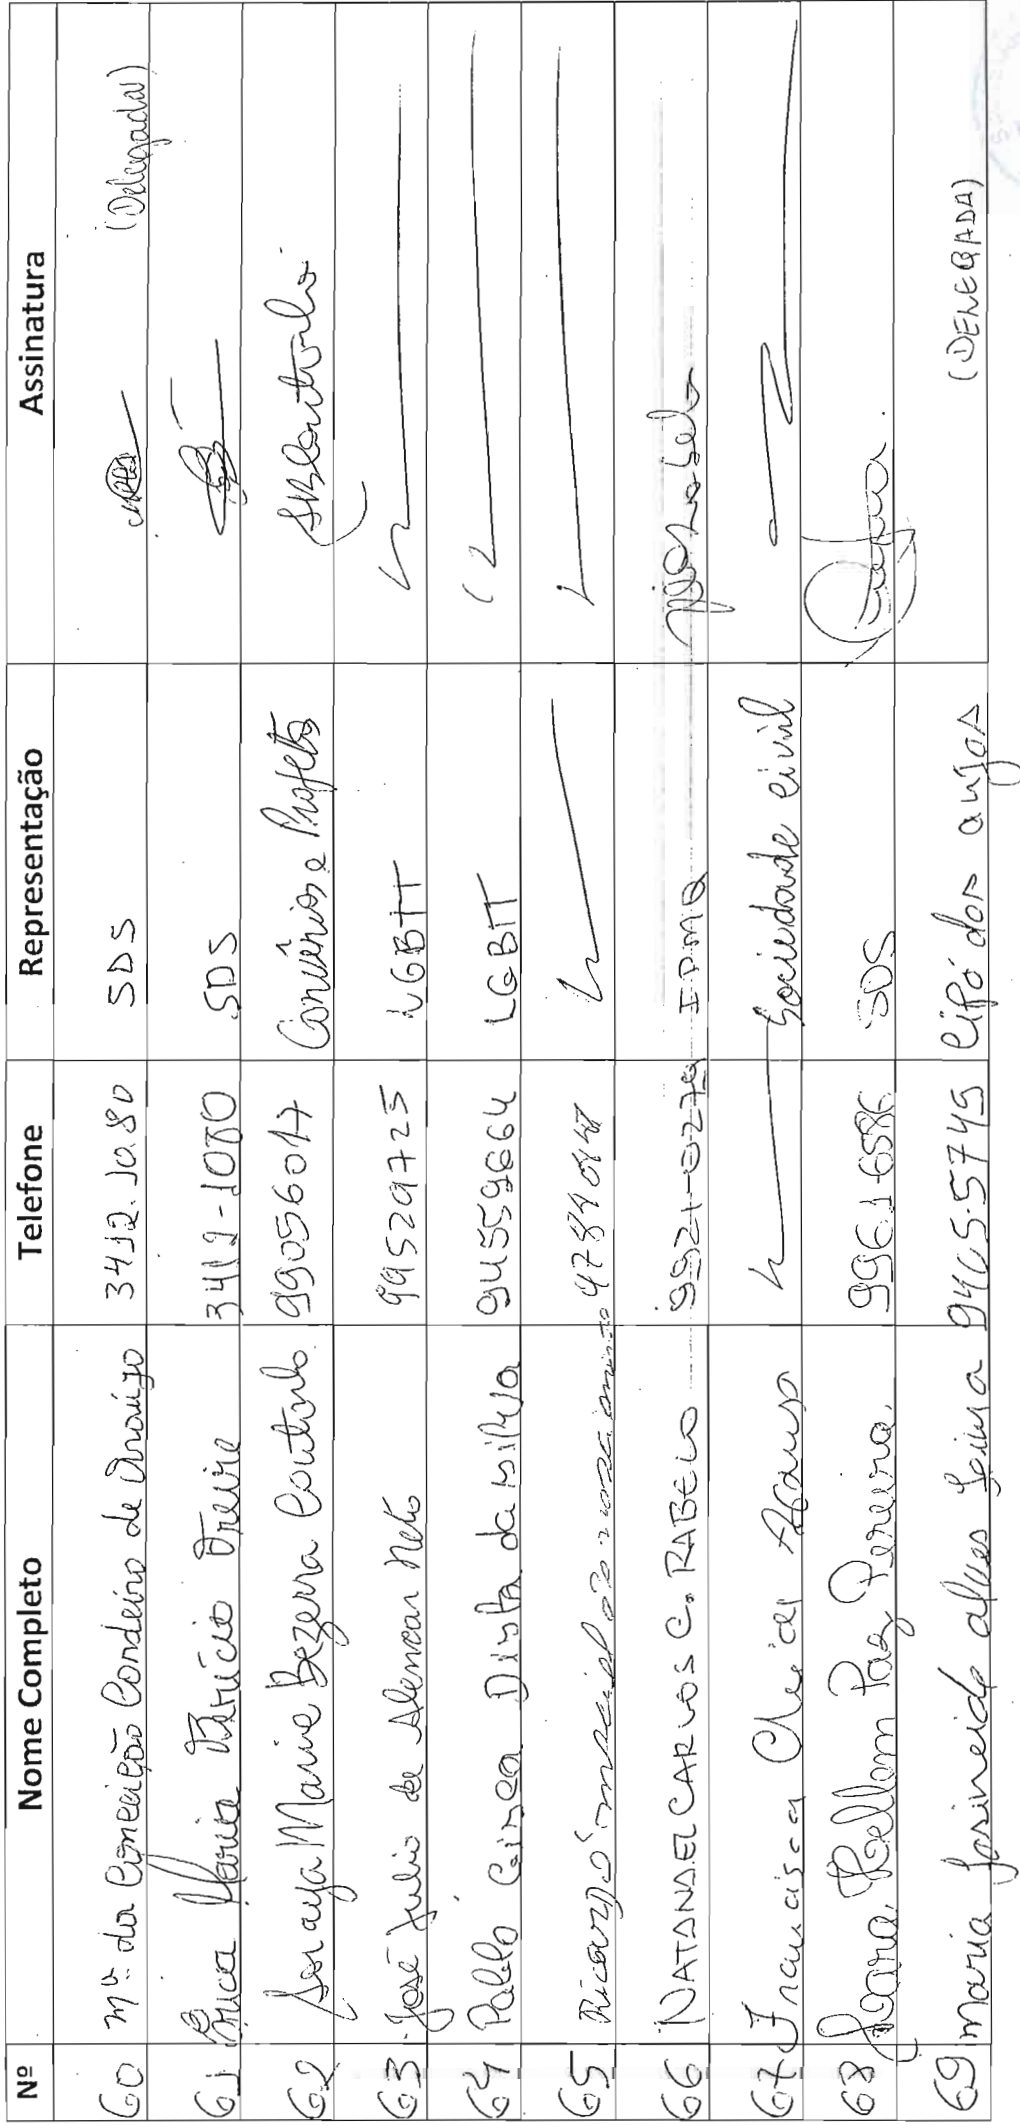 Nº Nome Completo Telefone Representação Assinatura
60 Mª da Conceição Cordeiro de Araújo 3412.1080 SDS (Delegada)
61 Érica Maria Patrício Freire 3412-1080 SDS
62 Soraya Marie Bezerra Coutinho 99056017 Convênios e Projetos SBCoutinho
63 José Julio de Alencar Neto 99529725 LGBTT
64 Pablo Costa da Silva 94559664 LGBTT
65 Ricardo nascimento
66 NATANAEL CARLOS C. RABELO 9921-0279 IDMQ
67 Francisca Afonso Sociedade civil
68 Joara Kellem Paz Pereira. 9961-6586 SDS
69 maria Josineide alves Lima 9465-5745 Cipó dos anjos (DELEGADA)